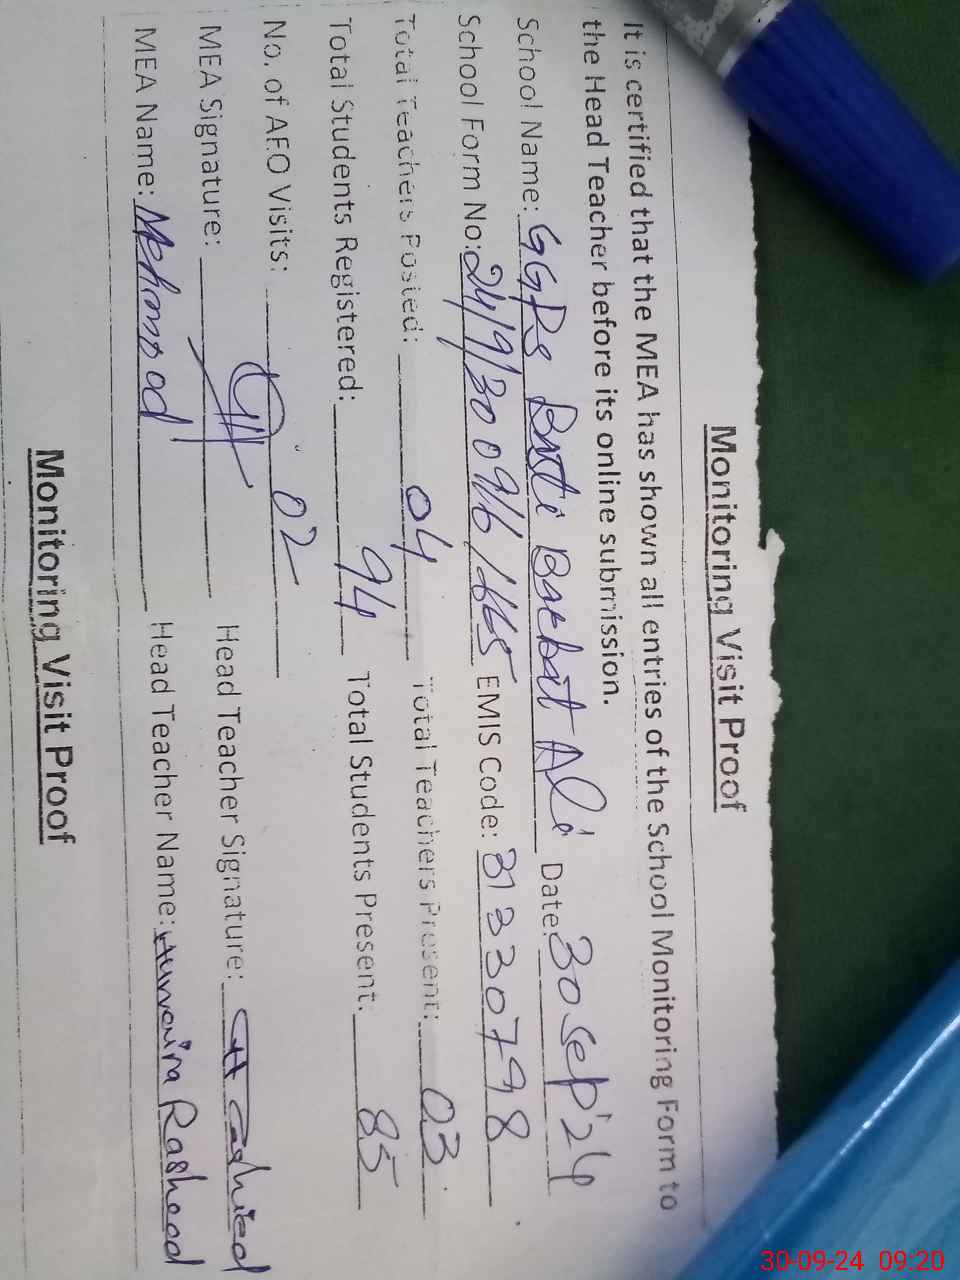 Monitoring Visit Proof
It is certified that the MEA has shown all entries of the School Monitoring Form to
the Head Teacher before its online submission.
School Name: GGPS Basti Barkat Ali Date: 30 Sep'24
School Form No: 24/9/30096/1665 EMIS Code: 31330798
Total Teachers Posted: 04 Total Teachers Present: 03
Total Students Registered: 94 Total Students Present: 85
No. of AEO Visits: 02
MEA Signature: Head Teacher Signature: H Rasheed
MEA Name: Mehmood Head Teacher Name: Humaira Rasheed
Monitoring Visit Proof
30-09-24 09:20